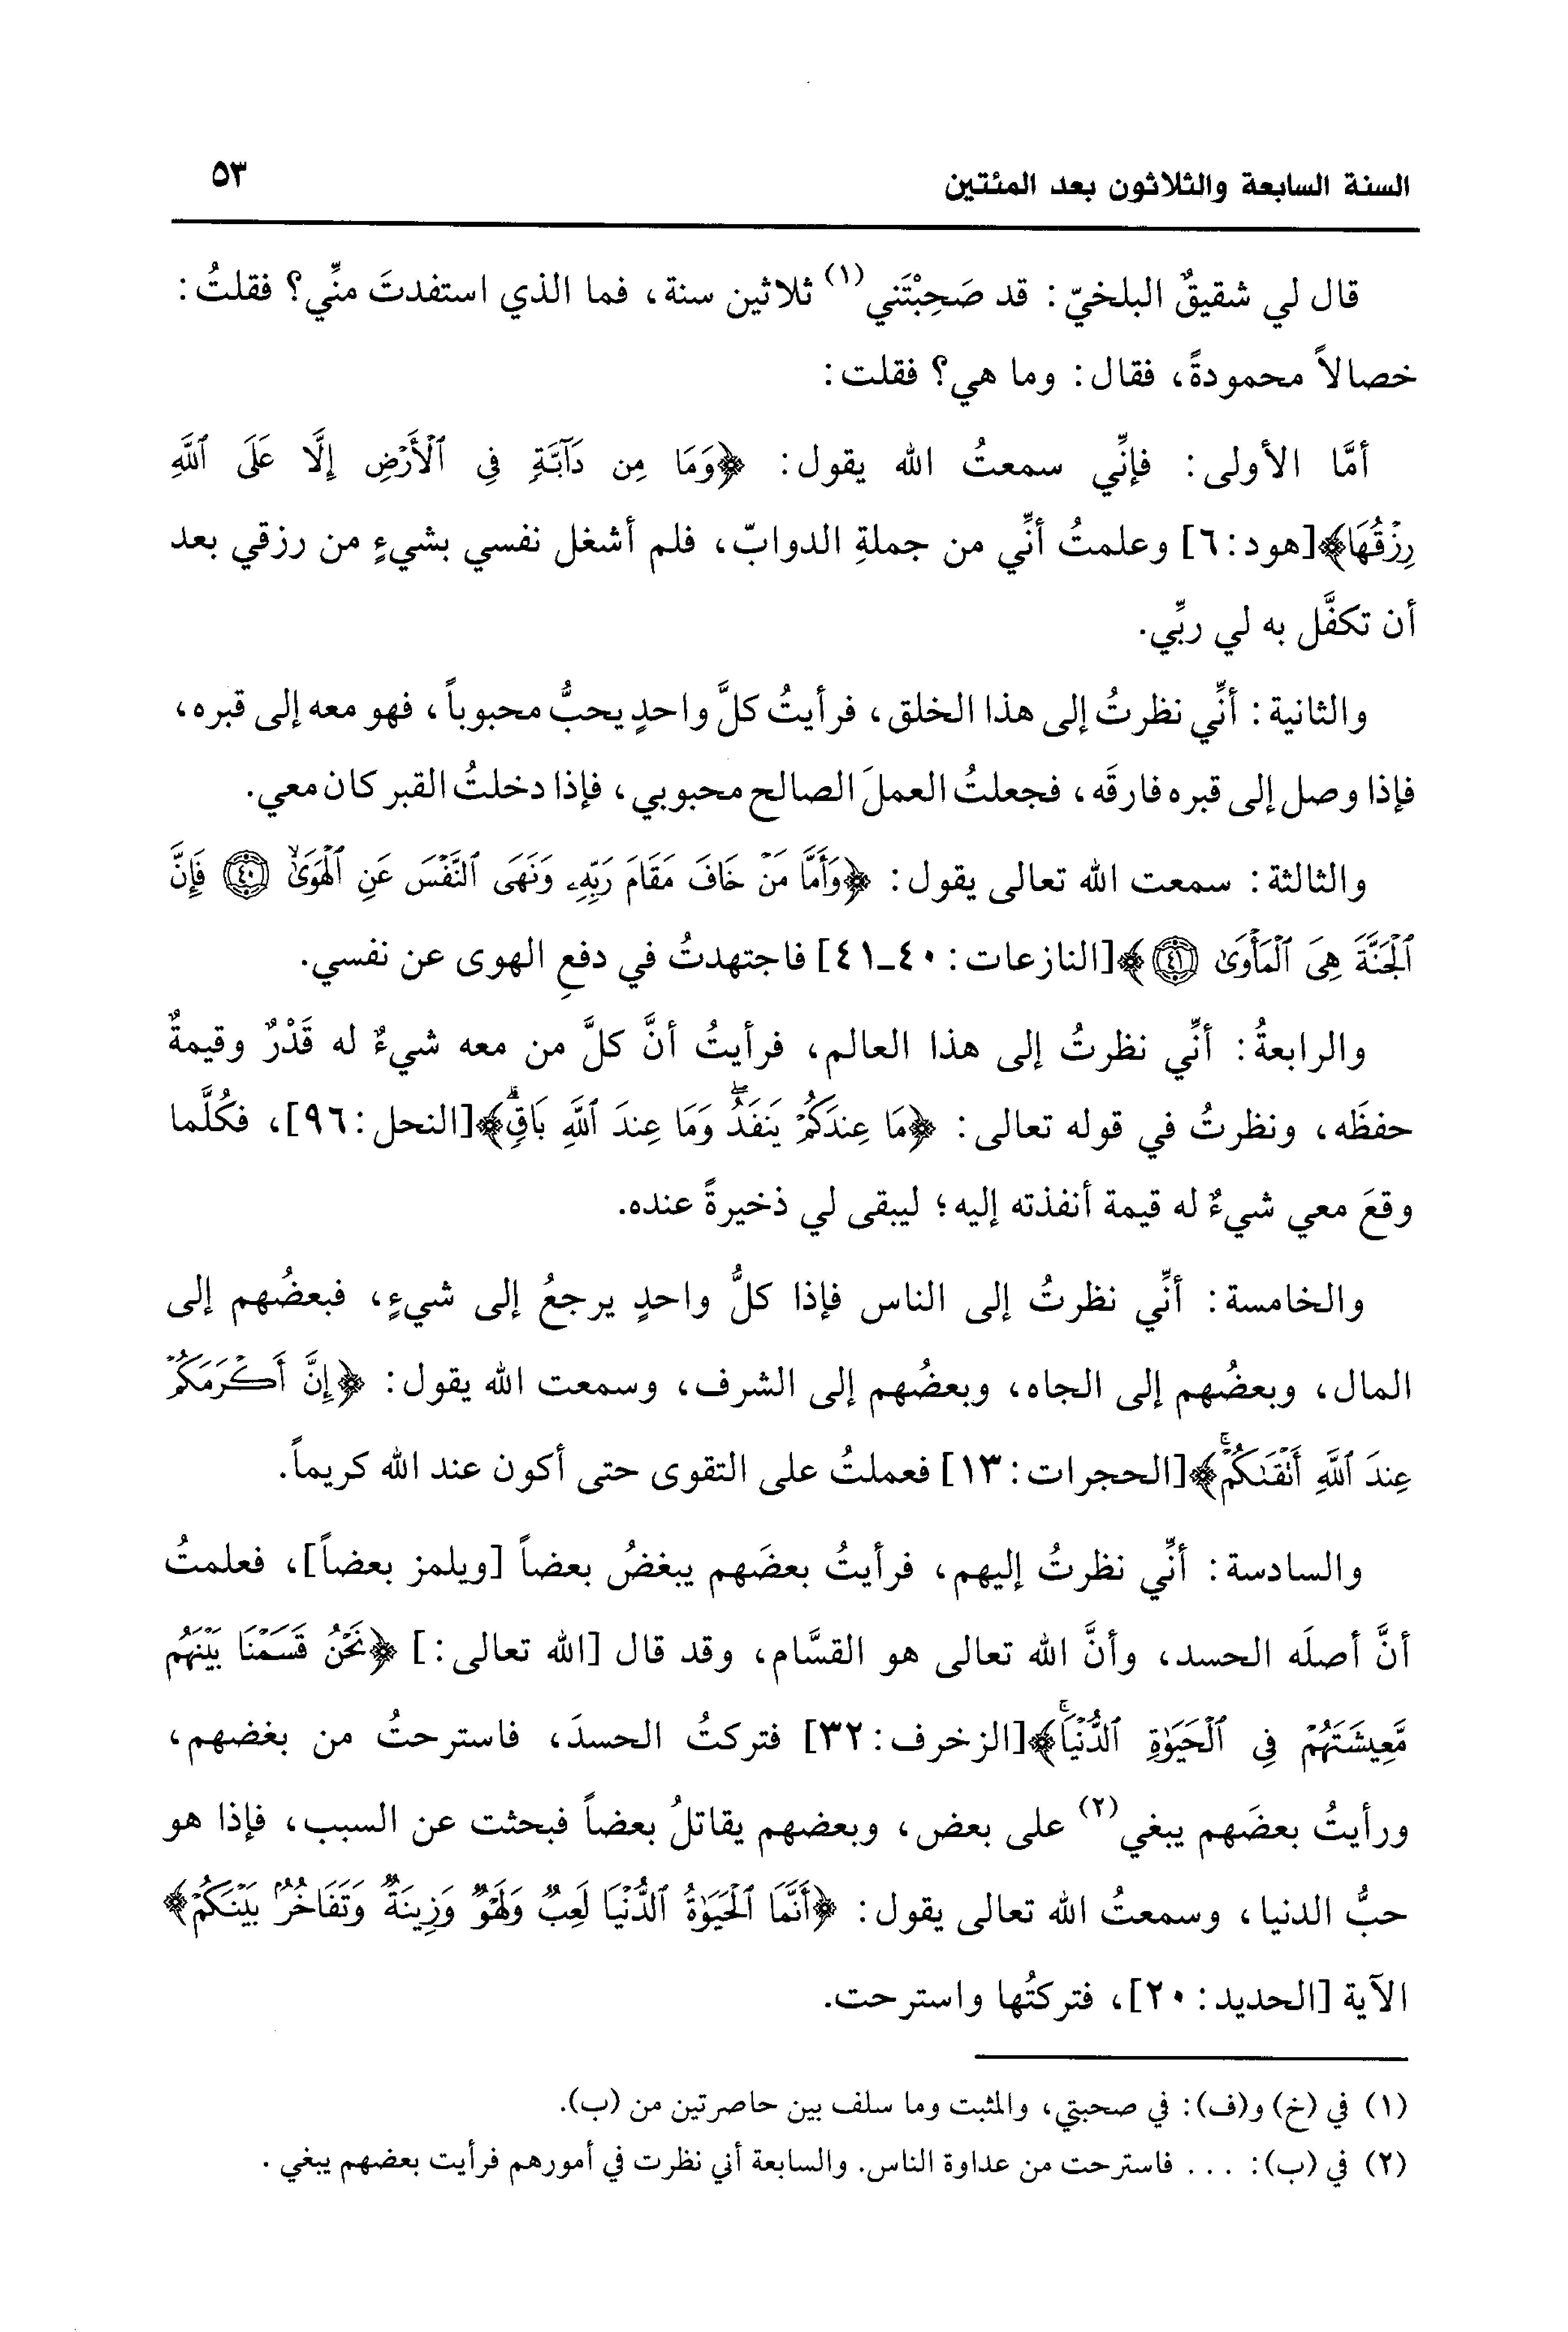 السنة السابعة والثلاثون بعد المئتين ٥٣
قال لي شقيقٌ البلخيّ: قد صَحِبْتَني(١) ثلاثين سنة، فما الذي استفدتَ منِّي؟ فقلتُ:
خصالاً محمودةً، فقال: وما هي؟ فقلت:
أمَّا الأولى: فإنِّي سمعتُ الله يقول: ﴿وَمَا مِن دَآبَّةٍ فِى ٱلْأَرْضِ إِلَّا عَلَى ٱللَّهِ
رِزْقُهَا﴾[هود:٦] وعلمتُ أنِّي من جملةِ الدوابّ، فلم أشغل نفسي بشيءٍ من رزقي بعد
أن تكفَّل به لي ربِّي.
والثانية: أنِّي نظرتُ إلى هذا الخلق، فرأيتُ كلَّ واحدٍ يحبُّ محبوباً، فهو معه إلى قبره،
فإذا وصل إلى قبره فارقَه، فجعلتُ العملَ الصالح محبوبي، فإذا دخلتُ القبر كان معي.
والثالثة: سمعت الله تعالى يقول: ﴿وَأَمَّا مَنْ خَافَ مَقَامَ رَبِّهِۦ وَنَهَى ٱلنَّفْسَ عَنِ ٱلْهَوَىٰ ۝٤٠ فَإِنَّ
ٱلْجَنَّةَ هِىَ ٱلْمَأْوَىٰ ۝٤١﴾[النازعات: ٤٠-٤١] فاجتهدتُ في دفعِ الهوى عن نفسي.
والرابعةُ: أنِّي نظرتُ إلى هذا العالم، فرأيتُ أنَّ كلَّ من معه شيءٌ له قَدْرٌ وقيمةٌ
حفظَه، ونظرتُ في قوله تعالى: ﴿مَا عِندَكُمْ يَنفَدُ ۖ وَمَا عِندَ ٱللَّهِ بَاقٍ ۗ﴾[النحل:٩٦]، فكُلَّما
وقعَ معي شيءٌ له قيمة أنفذته إليه؛ ليبقى لي ذخيرةً عنده.
والخامسة: أنِّي نظرتُ إلى الناس فإذا كلُّ واحدٍ يرجعُ إلى شيءٍ، فبعضُهم إلى
المال، وبعضُهم إلى الجاه، وبعضُهم إلى الشرف، وسمعت الله يقول: ﴿إِنَّ أَكْرَمَكُمْ
عِندَ ٱللَّهِ أَتْقَىٰكُمْ ۚ﴾[الحجرات:١٣] فعملتُ على التقوى حتى أكون عند الله كريماً.
والسادسة: أنِّي نظرتُ إليهم، فرأيتُ بعضَهم يبغضُ بعضاً [ويلمز بعضاً]، فعلمتُ
أنَّ أصلَه الحسد، وأنَّ الله تعالى هو القسَّام، وقد قال [الله تعالى:] ﴿نَحْنُ قَسَمْنَا بَيْنَهُم
مَّعِيشَتَهُمْ فِى ٱلْحَيَوٰةِ ٱلدُّنْيَا ۚ﴾[الزخرف:٣٢] فتركتُ الحسدَ، فاسترحتُ من بغضهم،
ورأيتُ بعضَهم يبغي(٢) على بعض، وبعضهم يقاتلُ بعضاً فبحثت عن السبب، فإذا هو
حبُّ الدنيا، وسمعتُ الله تعالى يقول: ﴿أَنَّمَا ٱلْحَيَوٰةُ ٱلدُّنْيَا لَعِبٌ وَلَهْوٌ وَزِينَةٌ وَتَفَاخُرٌۢ بَيْنَكُمْ﴾
الآية [الحديد:٢٠]، فتركتُها واسترحت.
(١) في (خ) و(ف): في صحبتي، والمثبت وما سلف بين حاصرتين من (ب).
(٢) في (ب): ... فاسترحت من عداوة الناس. والسابعة أني نظرت في أمورهم فرأيت بعضهم يبغي.